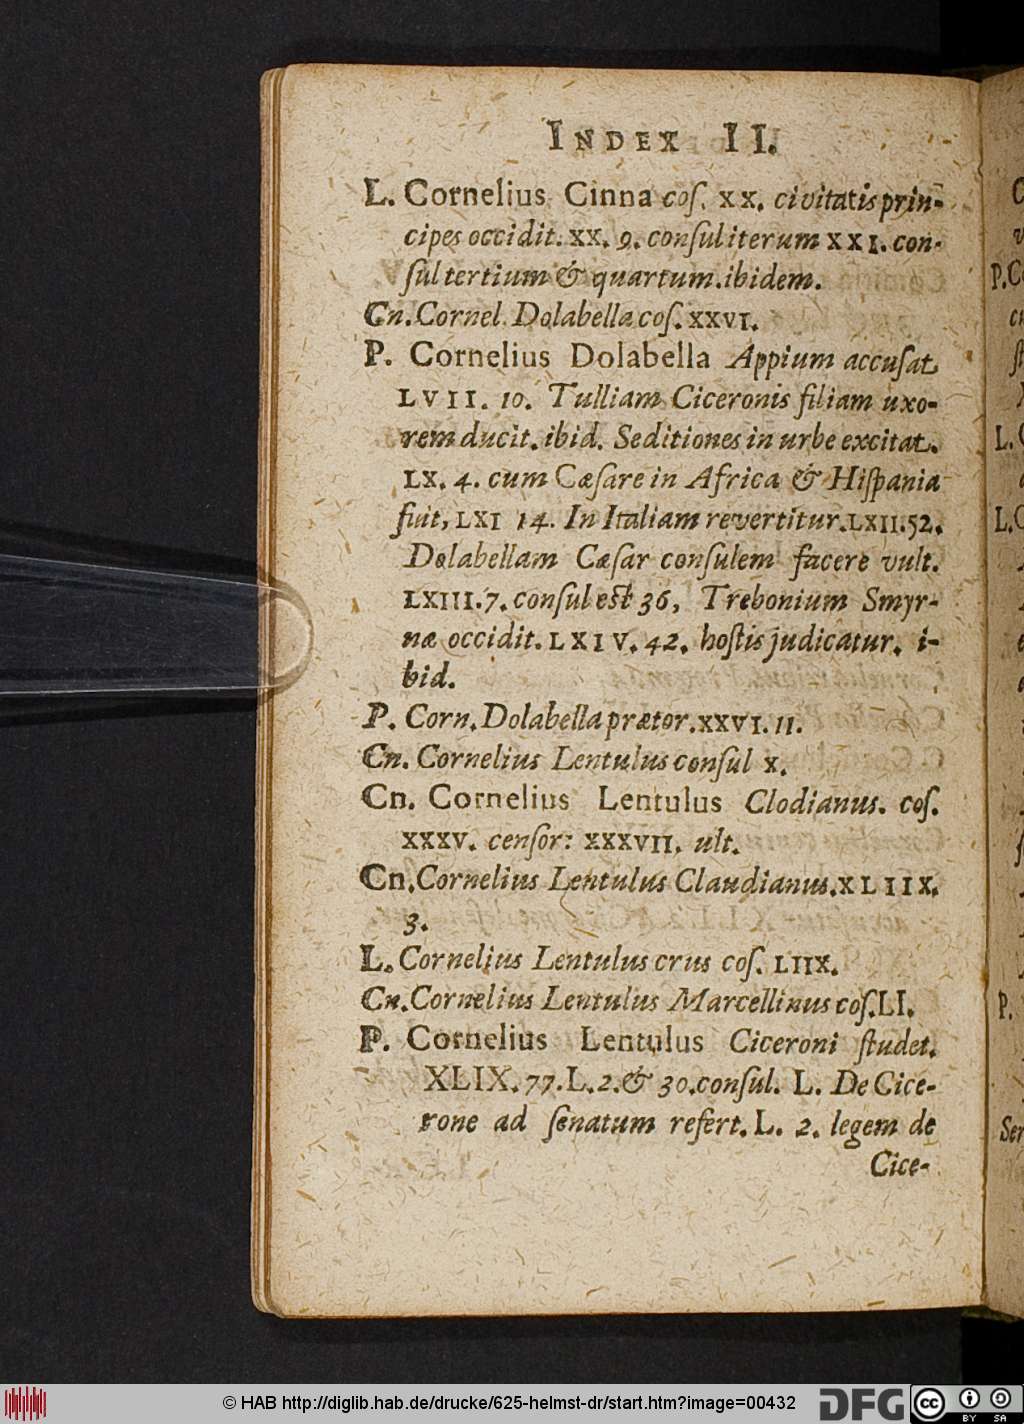 INDEX II.
L. Cornelius Cinna coſ. XX. civitatis prin-
cipes occidit. XX. 9. conſul iterum XXI. con-
ſul tertium & quartum. ibidem.
Cn. Cornel. Dolabella coſ. XXVI.
P. Cornelius Dolabella Appium accuſat
LVII. 10. Tulliam Ciceronis filiam uxo-
rem ducit. ibid. Seditiones in urbe excitat.
LX. 4. cum Cæſare in Africa & Hiſpania
fuit, LXI 14. In Italiam revertitur. LXII. 52.
Dolabellam Cæſar conſulem facere vult.
LXIII. 7. conſul eſt 36, Trebonium Smyr-
næ occidit. LXIV. 42. hoſtis judicatur. i-
bid.
P. Corn. Dolabella prætor. XXVI. 11.
Cn. Cornelius Lentulus conſul X.
Cn. Cornelius Lentulus Clodianus. coſ.
XXXV. cenſor: XXXVII. ult.
Cn. Cornelius Lentulus Claudianus. XLIIX.
3.
L. Cornelius Lentulus crus coſ. LIIX.
Cn. Cornelius Lentulus Marcellinus coſ. LI.
P. Cornelius Lentulus Ciceroni ſtudet.
XLIX. 77. L. 2. & 30. conſul. L. De Cice-
rone ad ſenatum refert. L. 2. legem de
Cice-
© HAB http://diglib.hab.de/drucke/625-helmst-dr/start.htm?image=00432
DFG
cc BY SA